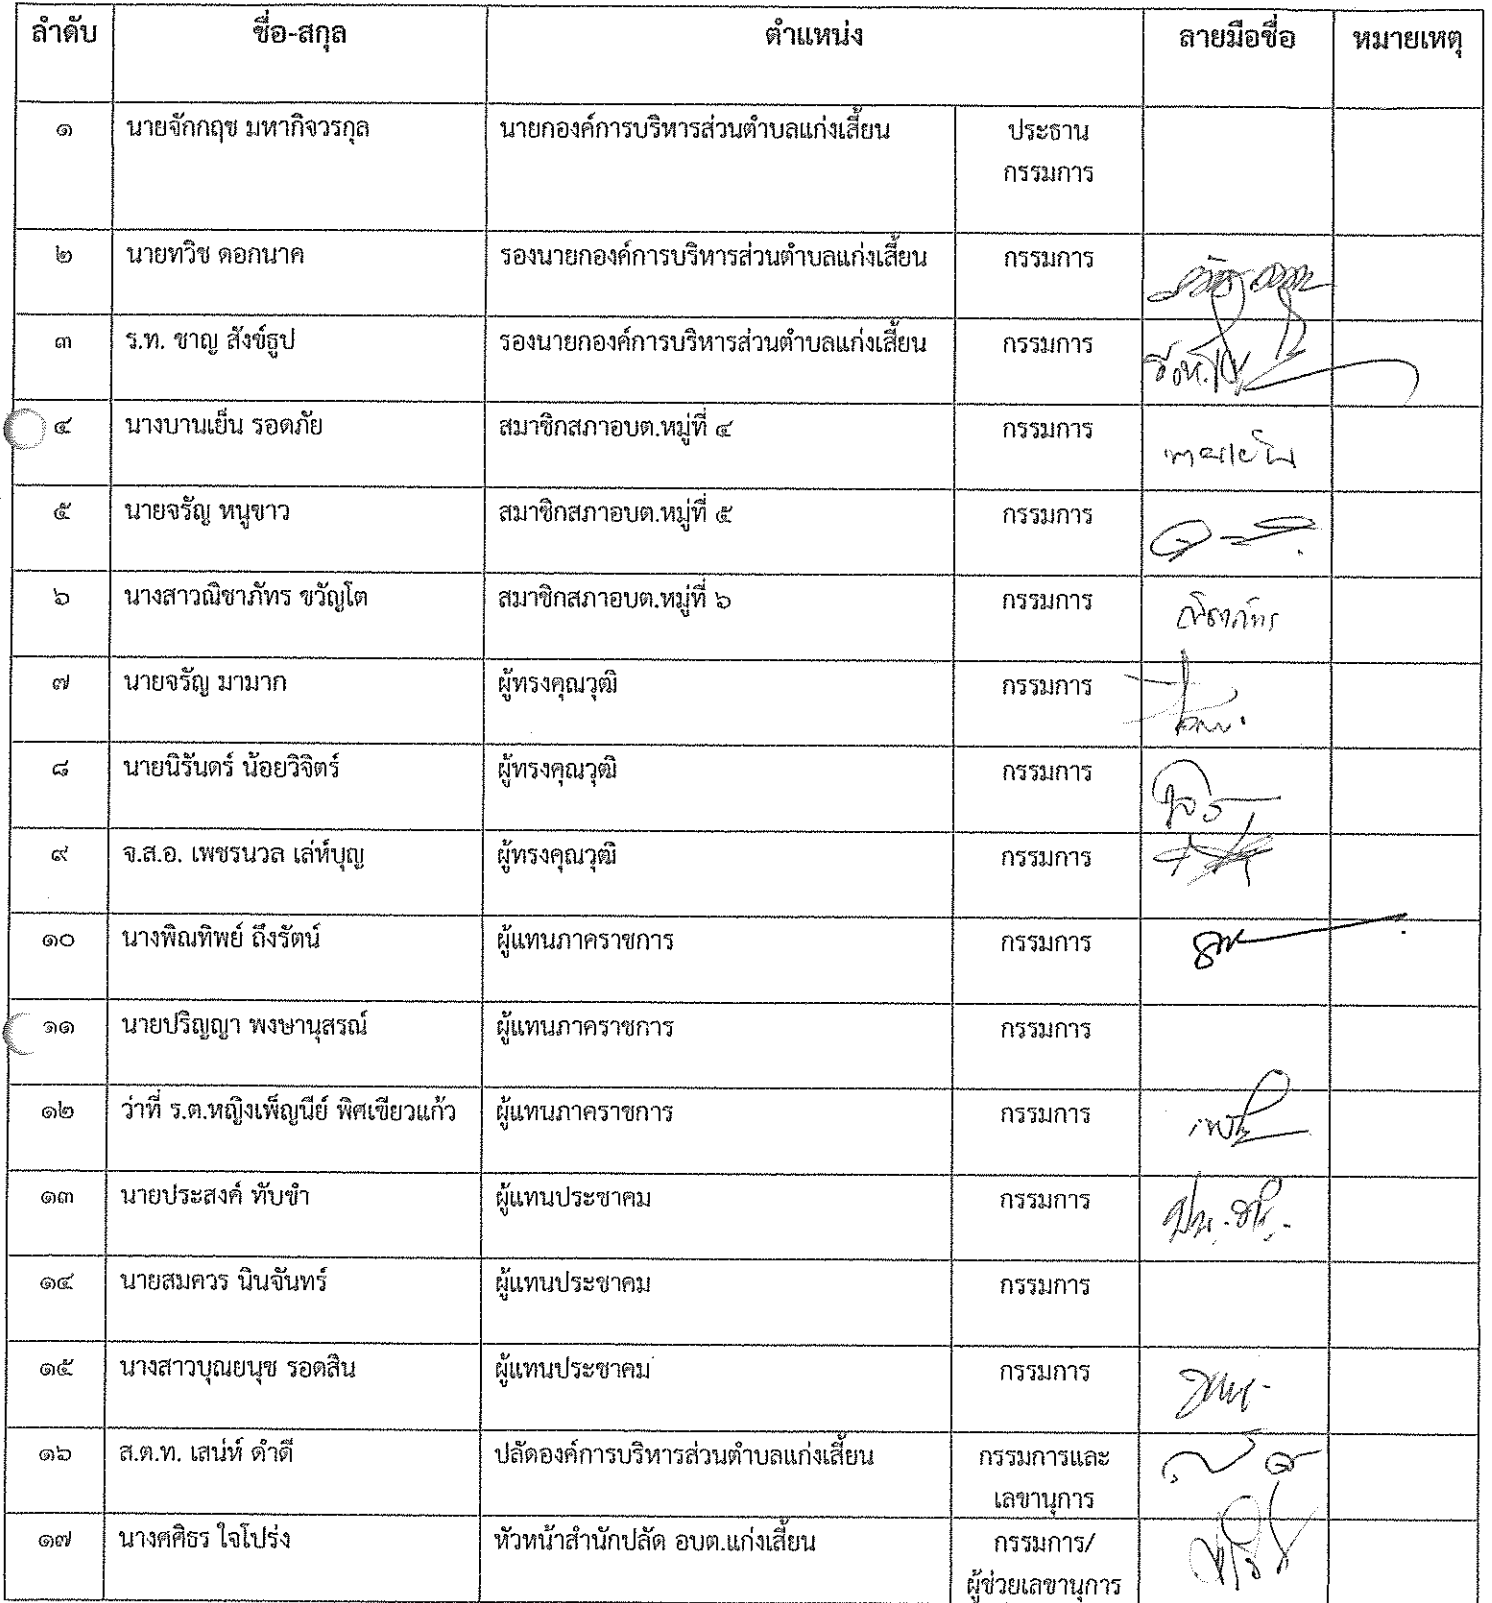 ลำดับ ชื่อ-สกุล ตำแหน่ง ลายมือชื่อ หมายเหตุ
๑ นายจักกฤช มหากิจวรกุล นายกองค์การบริหารส่วนตำบลแก่งเสี้ยน ประธาน
กรรมการ
๒ นายทวิช ดอกนาค รองนายกองค์การบริหารส่วนตำบลแก่งเสี้ยน กรรมการ
๓ ร.ท. ชาญ สังข์ธูป รองนายกองค์การบริหารส่วนตำบลแก่งเสี้ยน กรรมการ
๔ นางบานเย็น รอดภัย สมาชิกสภาอบต.หมู่ที่ ๔ กรรมการ บานเย็น
๕ นายจรัญ หนูขาว สมาชิกสภาอบต.หมู่ที่ ๕ กรรมการ
๖ นางสาวณิชาภัทร ขวัญโต สมาชิกสภาอบต.หมู่ที่ ๖ กรรมการ ณิชาภัทร
๗ นายจรัญ มามาก ผู้ทรงคุณวุฒิ กรรมการ
๘ นายนิรันดร์ น้อยวิจิตร์ ผู้ทรงคุณวุฒิ กรรมการ
๙ จ.ส.อ. เพชรนวล เล่ห์บุญ ผู้ทรงคุณวุฒิ กรรมการ
๑๐ นางพิณทิพย์ ถึงรัตน์ ผู้แทนภาคราชการ กรรมการ
๑๑ นายปริญญา พงษานุสรณ์ ผู้แทนภาคราชการ กรรมการ
๑๒ ว่าที่ ร.ต.หญิงเพ็ญนีย์ พิศเขียวแก้ว ผู้แทนภาคราชการ กรรมการ
๑๓ นายประสงค์ ทับขำ ผู้แทนประชาคม กรรมการ
๑๔ นายสมควร นินจันทร์ ผู้แทนประชาคม กรรมการ
๑๕ นางสาวบุณยนุช รอดสิน ผู้แทนประชาคม กรรมการ
๑๖ ส.ต.ท. เสน่ห์ ดำดี ปลัดองค์การบริหารส่วนตำบลแก่งเสี้ยน กรรมการและ
เลขานุการ
๑๗ นางศศิธร ใจโปร่ง หัวหน้าสำนักปลัด อบต.แก่งเสี้ยน กรรมการ/
ผู้ช่วยเลขานุการ